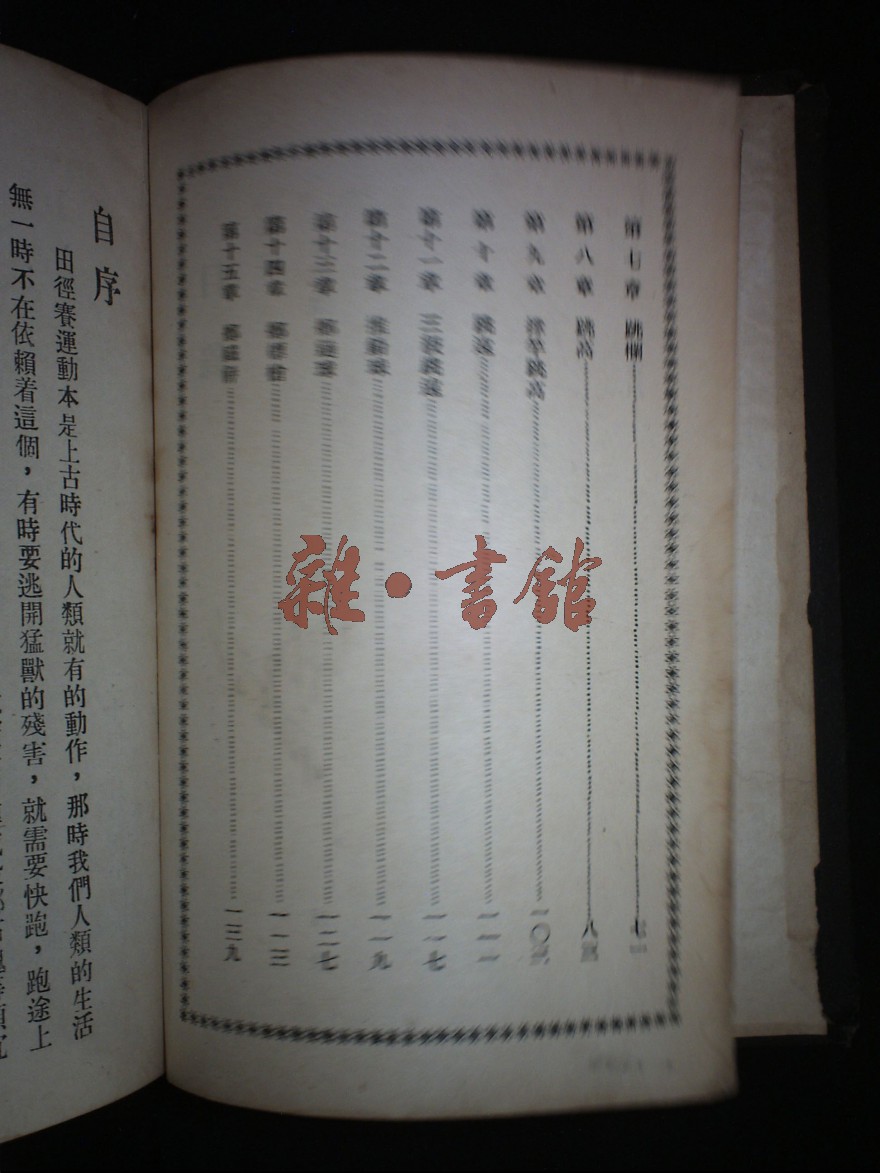 第七章 跳欄
第八章 跳高
第九章 撑竿跳高
第十章 跳遠 一一一
第十一章 三級跳遠 一一七
第十二章 推鉛球 一一九
第十三章 擲鏈球 一二七
第十四章 擲標槍
第十五章 擲鐵餅 一三九
自序
田徑賽運動本是上古時代的人類就有的動作，那時我們人類的生活
無一時不在依賴着這個，有時要逃開猛獸的殘害，就需要快跑，跑途上
雜·書館